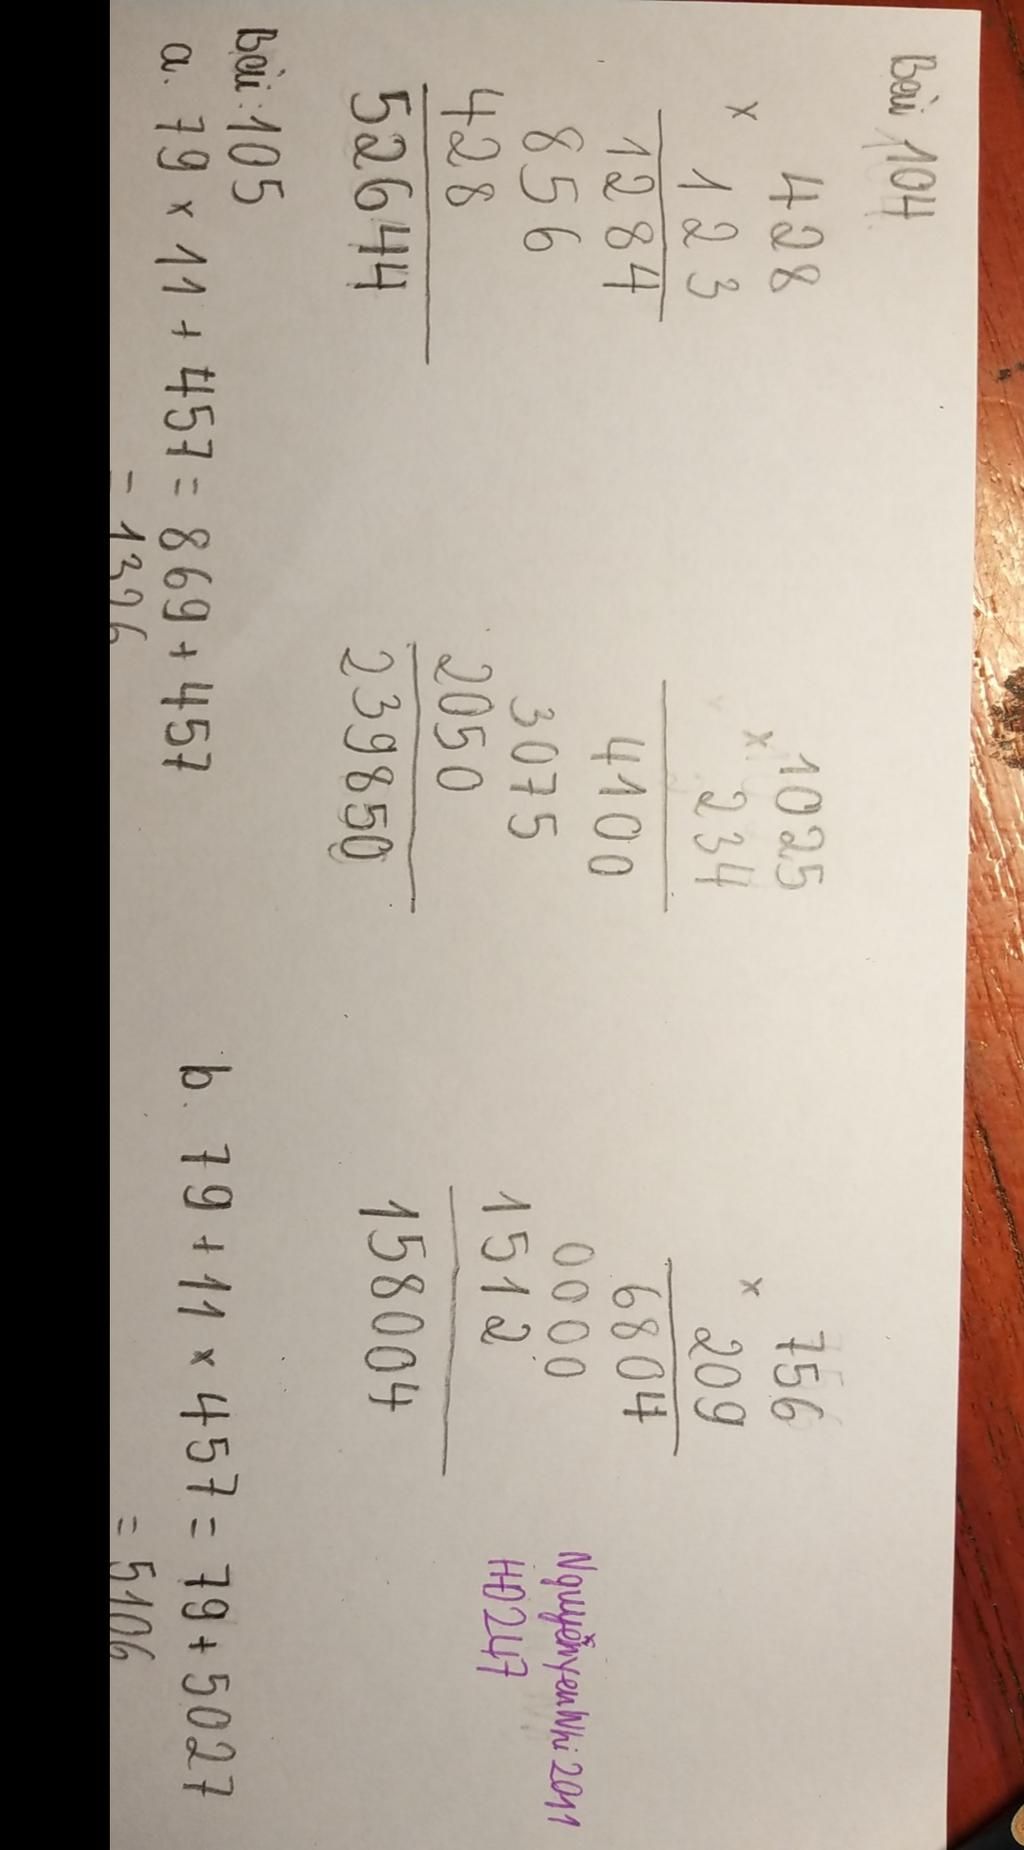 Bài 104
428
× 123
1284
856
428
52644
1025
× 234
4100
3075
2050
239850
756
× 209
6804
0000
1512
158004
NguyễnyenNhi 2011
HĐ247
Bài: 105
a. 79 × 11 + 457 = 869 + 457
= 1326
b. 79 + 11 × 457 = 79 + 5027
= 5106